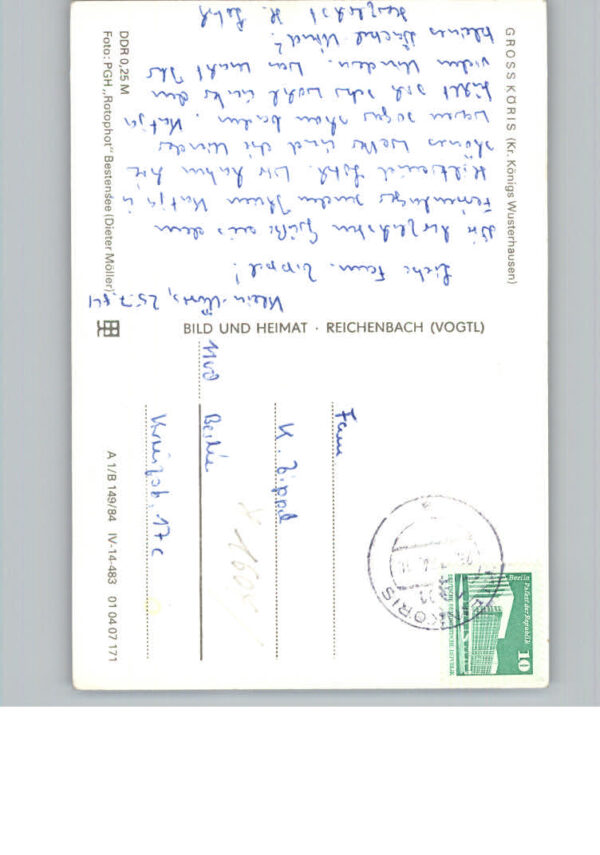 GROSS KÖRIS (Kr. Königs Wusterhausen)
Klein-Köris, 25.7.84
Liebe Fam. Zippel!
Die herzlichsten Grüße aus dem
Ferienlager senden Ihnen Katja u.
Wir haben hier
schönes Wetter und die Kinder
waren sogar schon baden. Katja
fühlt sich sehr wohl unter den
vielen Kindern. Was macht Ihr
kleines Dackel Kind?
Herzlichst H.
DDR 0,25 M
Foto: PGH „Rotophot" Bestensee (Dieter Möller)
BILD UND HEIMAT · REICHENBACH (VOGTL)
Fam
K. Zippel
Berlin
17c
A 1/B 149/84 IV-14-483 01 04 07 171
KÖRIS
Berlin Palast der Republik
10
DEUTSCHE DEMOKRATISCHE REPUBLIK